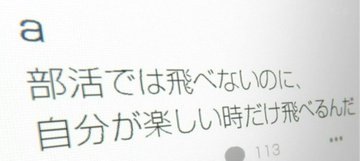 a
部活では飛べないのに、
自分が楽しい時だけ飛べるんだ
113